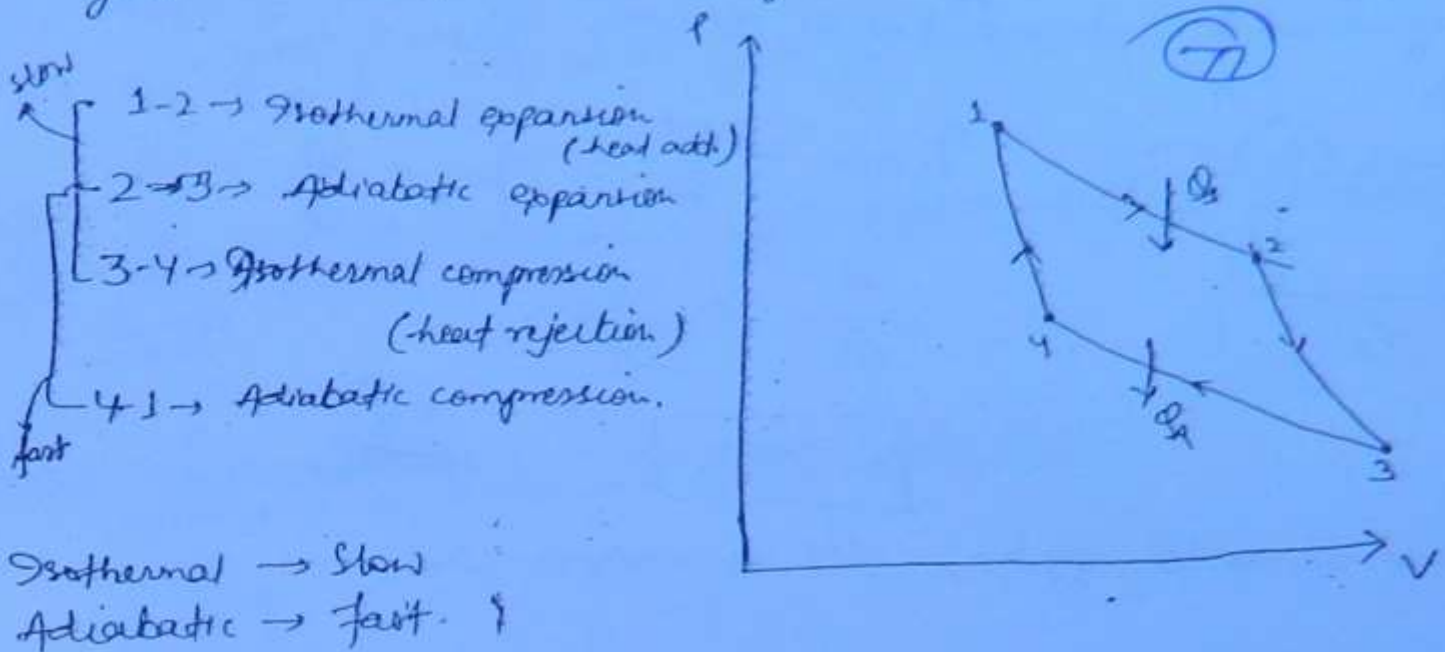 slow
1-2 → Isothermal expansion
(heat addn)
2→3 → Adiabatic expansion
3-4 → Isothermal compression
(heat rejection)
4-1 → Adiabatic compression.
fast
Isothermal → Slow
Adiabatic → fast.
P
1
Qs
2
4
QR
3
V